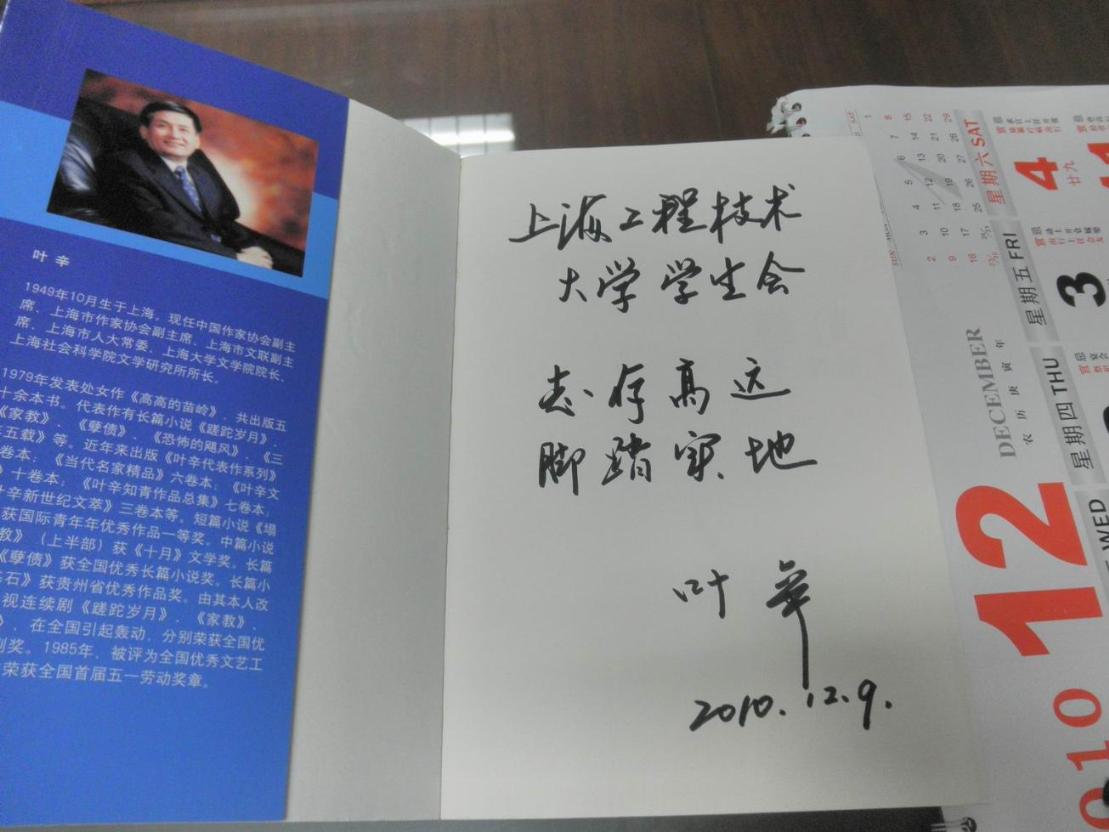 叶辛
1949年10月生于上海。现任中国作家协会副主
席、上海市作家协会副主席、上海市文联副主
席、上海市人大常委、上海大学文学院院长、
上海社会科学院文学研究所所长。
1979年发表处女作《高高的苗岭》。共出版五
十余本书。代表作有长篇小说《蹉跎岁月》、
《家教》、《孽债》、《恐怖的飓风》、《三
五载》等。近年来出版《叶辛代表作系列》
卷本；《当代名家精品》六卷本；《叶辛文
》十卷本；《叶辛知青作品总集》七卷本；
叶辛新世纪文萃》三卷本等。短篇小说《塌
获国际青年年优秀作品一等奖。中篇小说
教》（上半部）获《十月》文学奖。长篇
《孽债》获全国优秀长篇小说奖。长篇小
石》获贵州省优秀作品奖。由其本人改
视连续剧《蹉跎岁月》、《家教》、
》，在全国引起轰动，分别荣获全国优
剧奖。1985年，被评为全国优秀文艺工
荣获全国首届五一劳动奖章。
上海工程技术
大学学生会
志存高远
脚踏实地
叶辛
2010.12.9.
星期六 SAT
4
廿九
星期五 FRI
3
星期四 THU
WED
DECEMBER
农历庚寅年
12
010